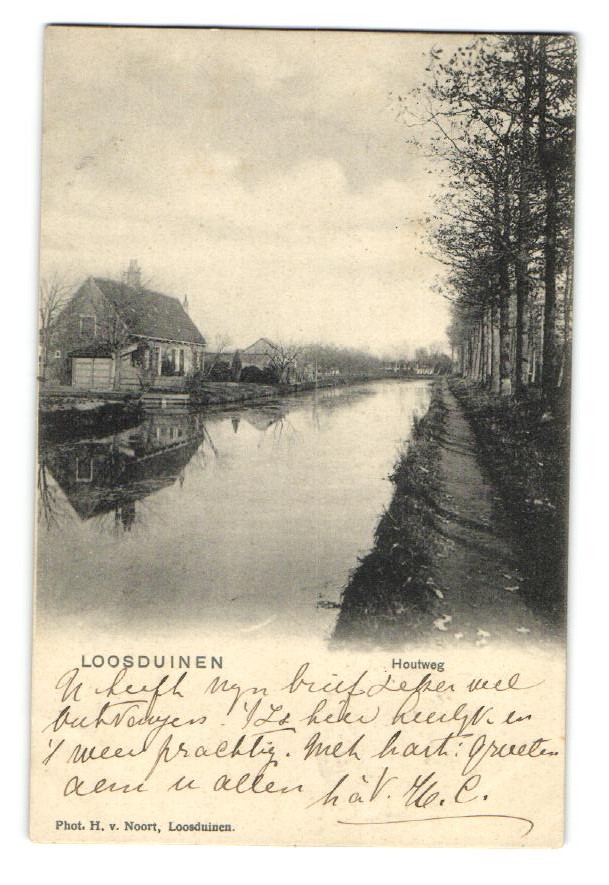 LOOSDUINEN Houtweg
U heeft myn brief zeker wel
ontvangen. 't Is hier heerlyk en
't weer prachtig. Met hart: Groeten
aem u allen
H. C.
Phot. H. v. Noort, Loosduinen.